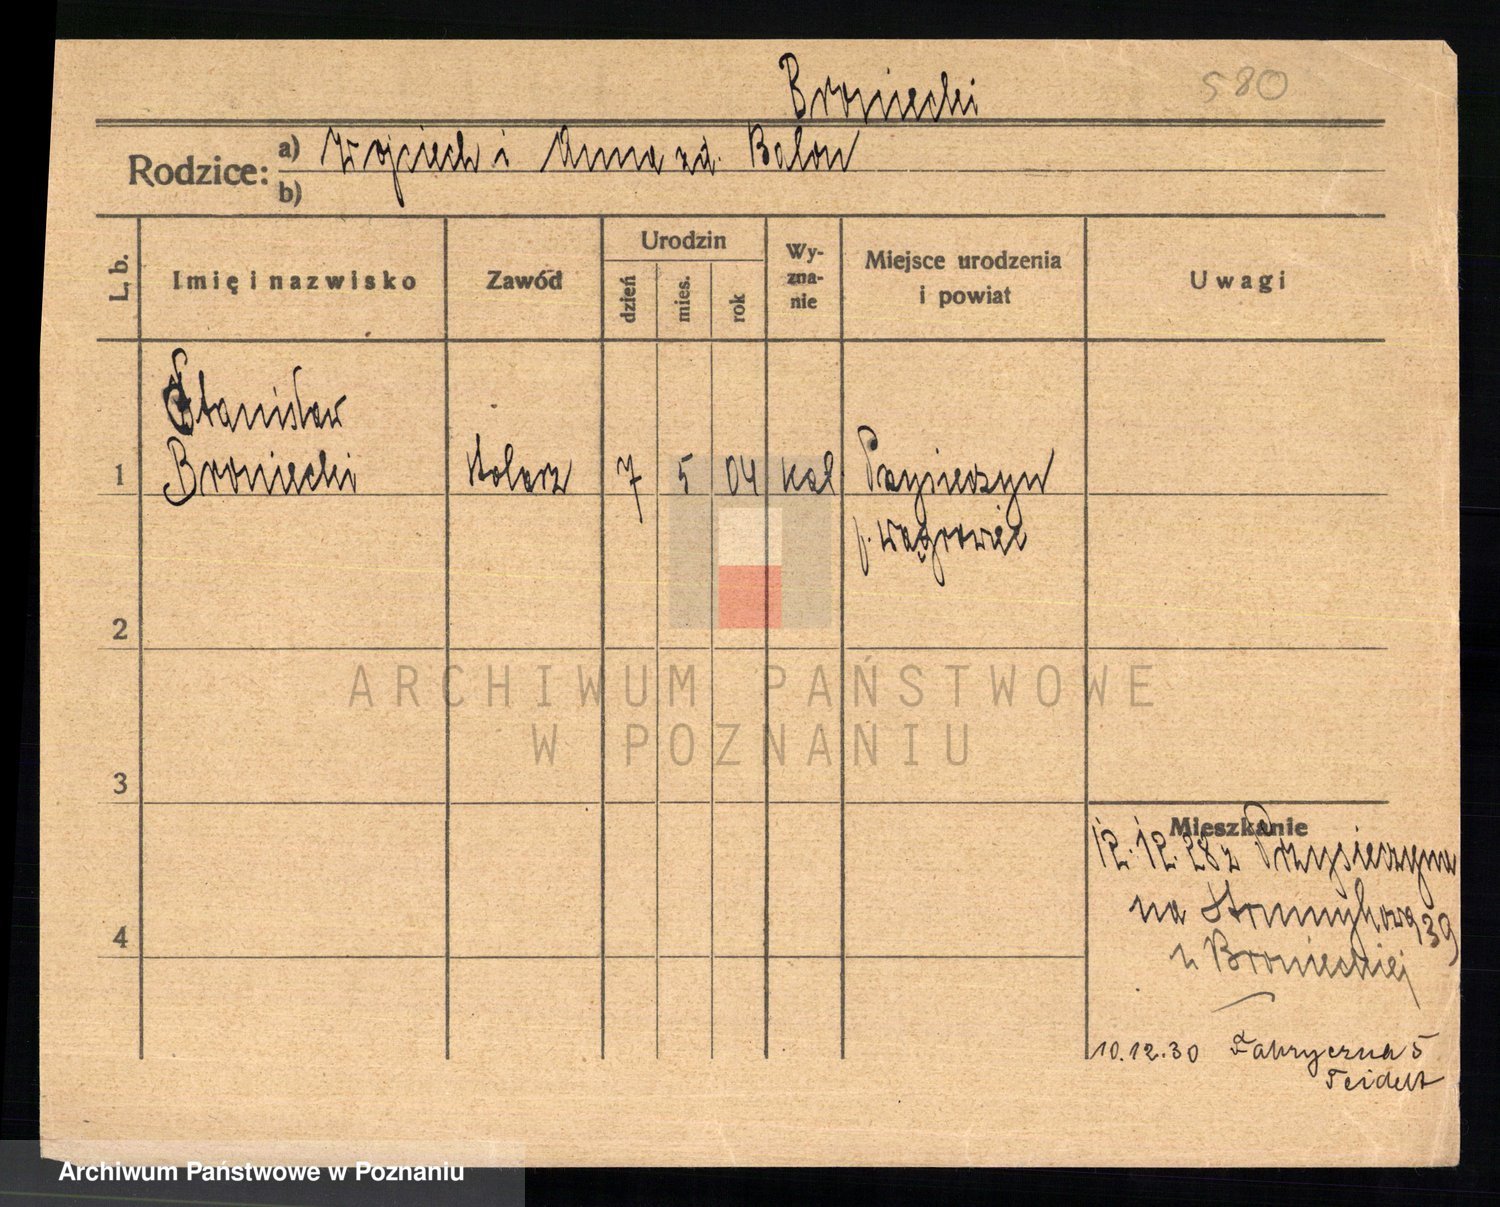 Broniecki 580
Rodzice: a) Wojciech i Anna zd. Balon
b)
L. b. Imię i nazwisko Zawód Urodzin dzień mies. rok Wyznanie Miejsce urodzenia i powiat Uwagi
Stanisław
1 Broniecki stolarz 7 5 04 kat Przysieczyn
p. Wągrowiec
2
3
Mieszkanie
12.12.28 z Przysieczyna
4 na Strumykowa 39
u Bronieckiej
10.12.30 Fabryczna 5
ARCHIWUM PAŃSTWOWE
W POZNANIU
Archiwum Państwowe w Poznaniu